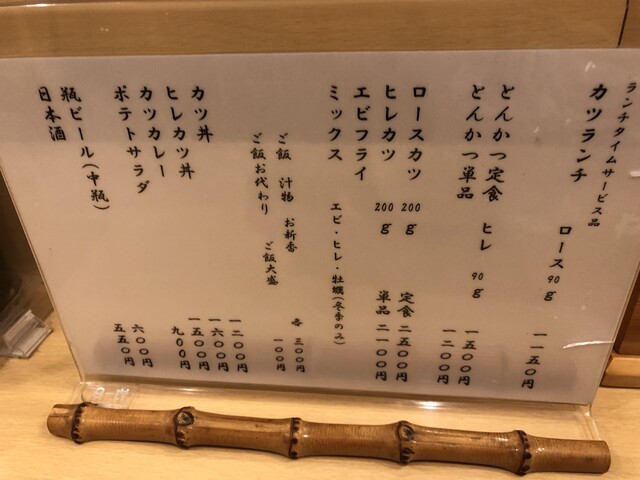 ランチタイムサービス品
カツランチ
ロース 90g 一一五〇円
とんかつ定食 一五〇〇円
とんかつ単品 ヒレ 90g 一二〇〇円
ロースカツ 200g 定食 二五〇〇円
ヒレカツ 200g 単品 二一〇〇円
エビフライ
ミックス エビ・ヒレ・牡蠣(冬季のみ)
ご飯 汁物 お新香 各 三〇〇円
ご飯お代わり ご飯大盛 一〇〇円
カツ丼 一二〇〇円
ヒレカツ丼 一六〇〇円
カツカレー 一五〇〇円
ポテトサラダ 九00円
瓶ビール(中瓶) 六〇〇円
日本酒 五五〇円